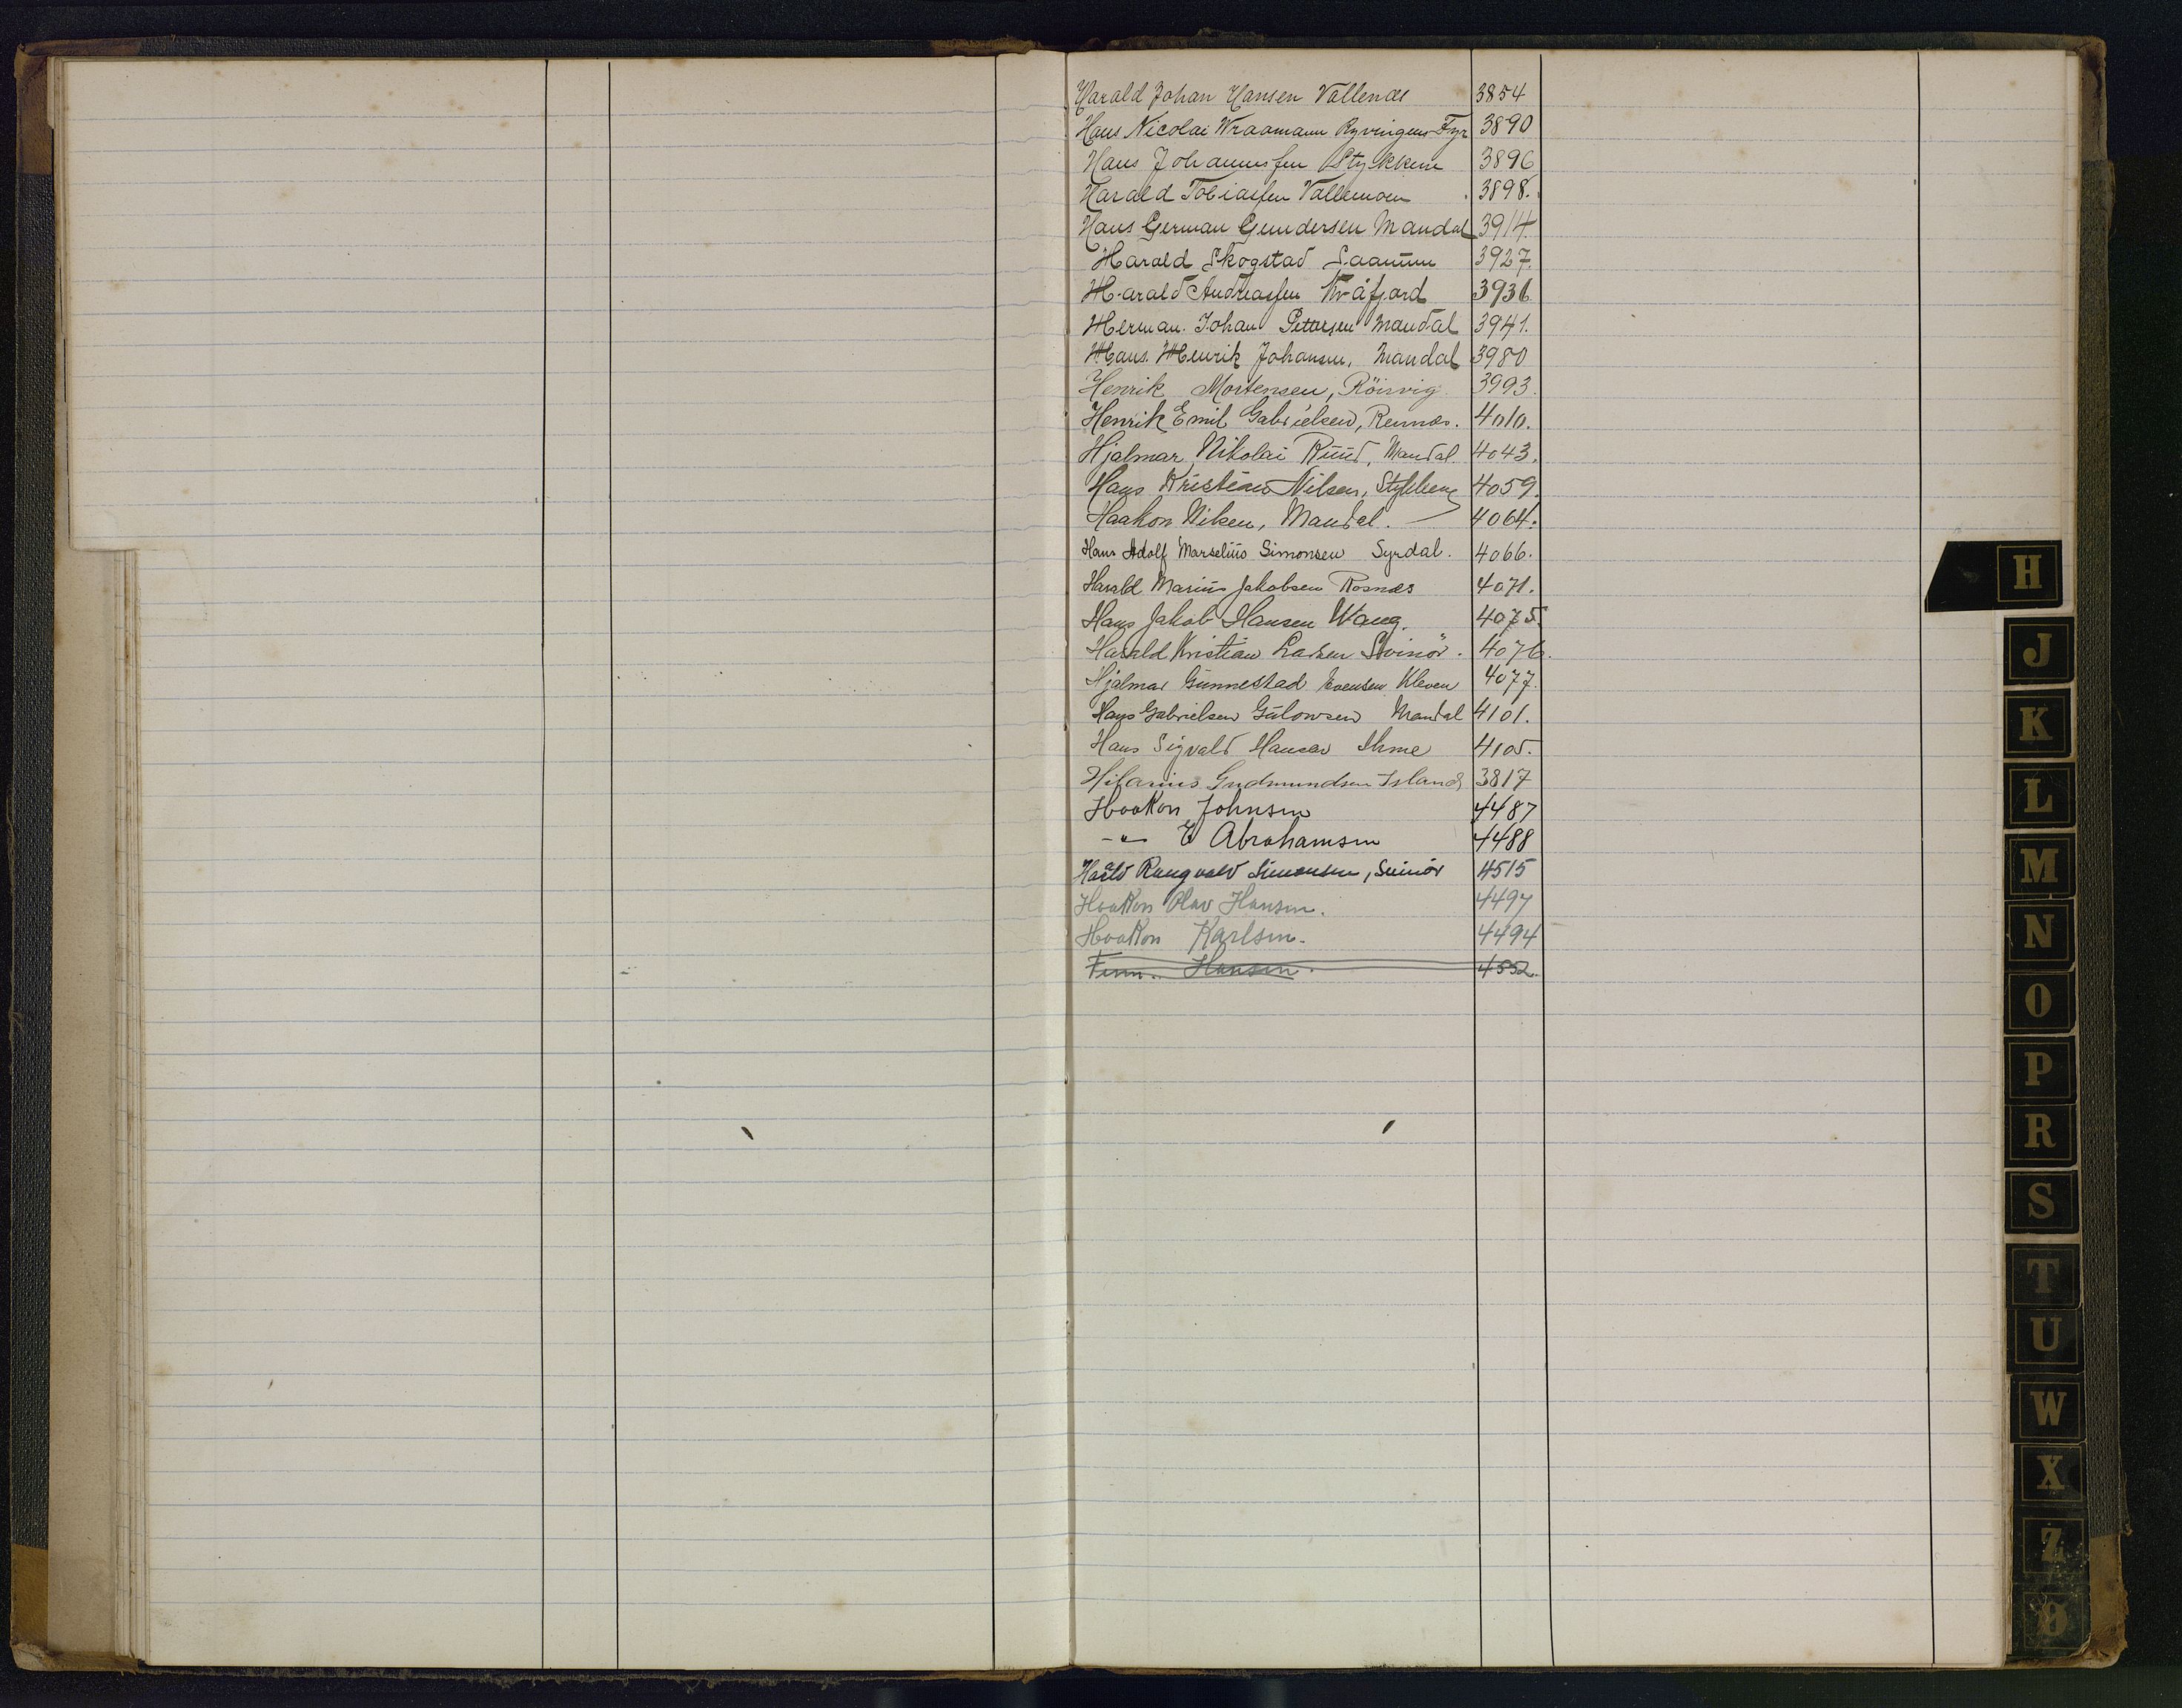 Harald Johan Hansen Vallenæs 3854
Hans Nicolai Wraamann Ryvingens Fyr 3890
Hans Johannesen Stykkene 3896
Harald Tobiassen Vallemoen 3898.
Hans German Gundersen Mandal 3914.
Harald Skogstad Saanum 3927.
Harald Andreassen Kråfjord 3936
Herman. Johan Pettersen Mandal 3941.
Hans. Henrik Johansen, Mandal 3980
Henrik Mortensen, Röirvig 3993.
Henrik Emil Gabrielsen, Rennes. 4010.
Hjalmar Nikolai Ruud, Mandal. 4043.
Hans Kristian Nilsen, 4059.
Haakon Nilsen, Mandal. 4064.
Hans Adolf Marselius Simonsen Syrdal. 4066.
Harald Marius Jakobsen Rosnæs 4071.
Hans Jakob Hansen Wang. 4075.
Harald Kristian Larsen Svinör. 4076.
Hjalmar Gunnestad Evensen Kleven 4077.
Hans Gabrielsen Gulowsen Mandal 4101.
Hans Sigvald Hansen Ihme 4105.
Hilarius Gudmundsen Island 3817
Haakon Johnsen 4487
-"- E Abrahamsen 4488
Harald Rangvald Simonsen, Svinör 4515
Haakon Olav Hansen. 4497
Haakon Karlsen. 4494
Finn. Hansen. 4552.
H
J
K
L
M
N
O
P
R
S
T
U
W
X
Z
Ø